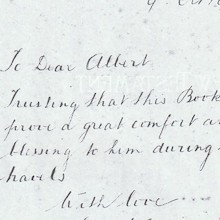 To Dear Albert
Trusting that this Book
prove a great comfort a
blessing to him during
travels
With love